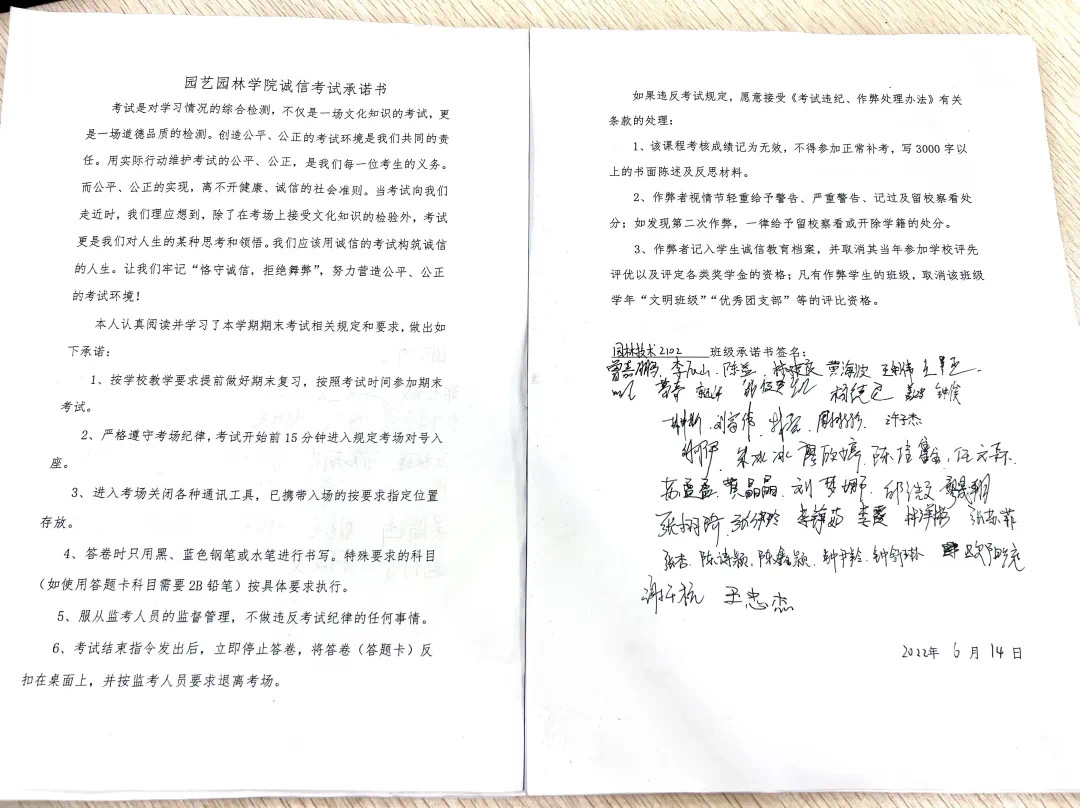 园艺园林学院诚信考试承诺书
考试是对学习情况的综合检测，不仅是一场文化知识的考试，更
是一场道德品质的检测。创造公平、公正的考试环境是我们共同的责
任。用实际行动维护考试的公平、公正，是我们每一位考生的义务。
而公平、公正的实现，离不开健康、诚信的社会准则。当考试向我们
走近时，我们理应想到，除了在考场上接受文化知识的检验外，考试
更是我们对人生的某种思考和领悟。我们应该用诚信的考试构筑诚信
的人生。让我们牢记“恪守诚信，拒绝舞弊”，努力营造公平、公正
的考试环境！
本人认真阅读并学习了本学期期末考试相关规定和要求，做出如
下承诺：
1、按学校教学要求提前做好期末复习，按照考试时间参加期末
考试。
2、严格遵守考场纪律，考试开始前15分钟进入规定考场对号入
座。
3、进入考场关闭各种通讯工具，已携带入场的按要求指定位置
存放。
4、答卷时只用黑、蓝色钢笔或水笔进行书写。特殊要求的科目
（如使用答题卡科目需要2B铅笔）按具体要求执行。
5、服从监考人员的监督管理，不做违反考试纪律的任何事情。
6、考试结束指令发出后，立即停止答卷，将答卷（答题卡）反
扣在桌面上，并按监考人员要求退离考场。
如果违反考试规定，愿意接受《考试违纪、作弊处理办法》有关
条款的处理：
1、该课程考核成绩记为无效，不得参加正常补考，写3000字以
上的书面陈述及反思材料。
2、作弊者视情节轻重给予警告、严重警告、记过及留校察看处
分；如发现第二次作弊，一律给予留校察看或开除学籍的处分。
3、作弊者记入学生诚信教育档案，并取消其当年参加学校评先
评优以及评定各类奖学金的资格；凡有作弊学生的班级，取消该班级
学年“文明班级”“优秀团支部”等的评比资格。
园林技术2102 班级承诺书签名：
陈益
刘富伟 许子杰
朱冰冰
苏盈盈 黄晶晶 刘梦娜
李霞
张杏 陈诗颖 陈鑫颖
王忠杰
2022年 6月 14日